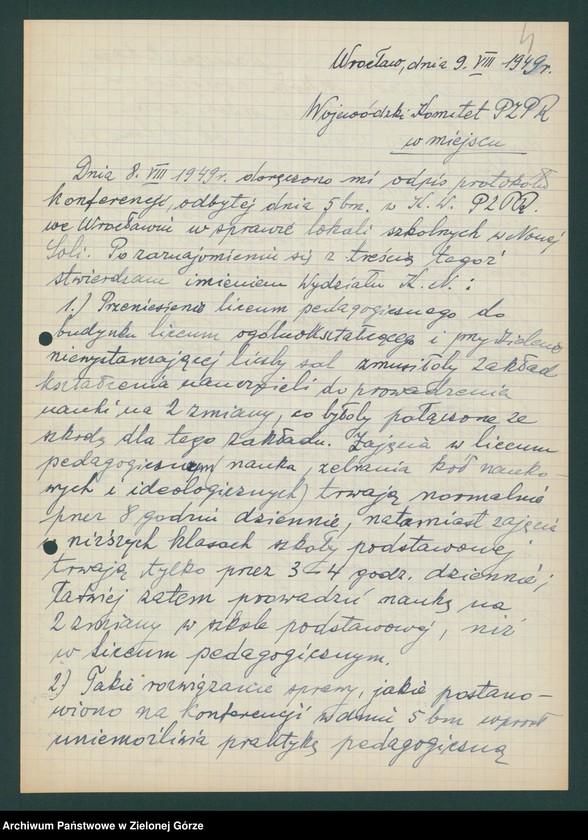 4
Wrocław, dnia 9. VIII 1949r.
Wojewódzki Komitet PZPR
w miejscu
Dnia 8. VIII 1949r. doręczono mi odpis protokółu
konferencji, odbytej dnia 5 bm. w K. W. PZPR.
we Wrocławiu w sprawie lokali szkolnych w Nowej
Soli. Po zaznajomieniu się z treścią tegoż
stwierdzam imieniem Wydziału K. N. :
1.) Przeniesienie liceum pedagogicznego do
budynku liceum ogólnokształcącego i przydzielenie
niewystarczającej liczby sal zmusiłoby Zakład
kształcenia nauczycieli do prowadzenia
nauki na 2 zmiany, co byłoby połączone ze
szkodą dla tego zakładu. Zajęcia w liceum
pedagogicznym (nauka, zebrania kół nauko-
wych i ideologicznych) trwają normalnie
przez 8 godzin dziennie, natomiast zajęcia
w niższych klasach szkoły podstawowej
trwają tylko przez 3-4 godz. dziennie;
łatwiej zatem prowadzić naukę na
2 zmiany w szkole podstawowej, niż
w liceum pedagogicznym.
2.) Takie rozwiązanie sprawy, jakie postano-
wiono na konferencji w dniu 5 bm wprost
uniemożliwia praktykę pedagogiczną
Archiwum Państwowe w Zielonej Górze